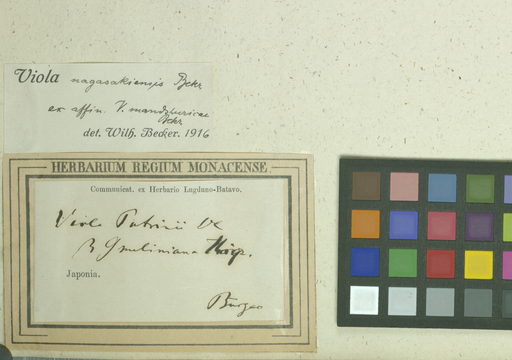 Viola nagasakiensis Bckr
ex affin. V. mandshuricae
Bckr
det. Wilh. Becker. 1916
HERBARIUM REGIUM MONACENSE
Communicat. ex Herbario Lugduno-Batavo.
Viola Patrinii DC
β Gmeliniana Miq.
Japonia.
Bürger